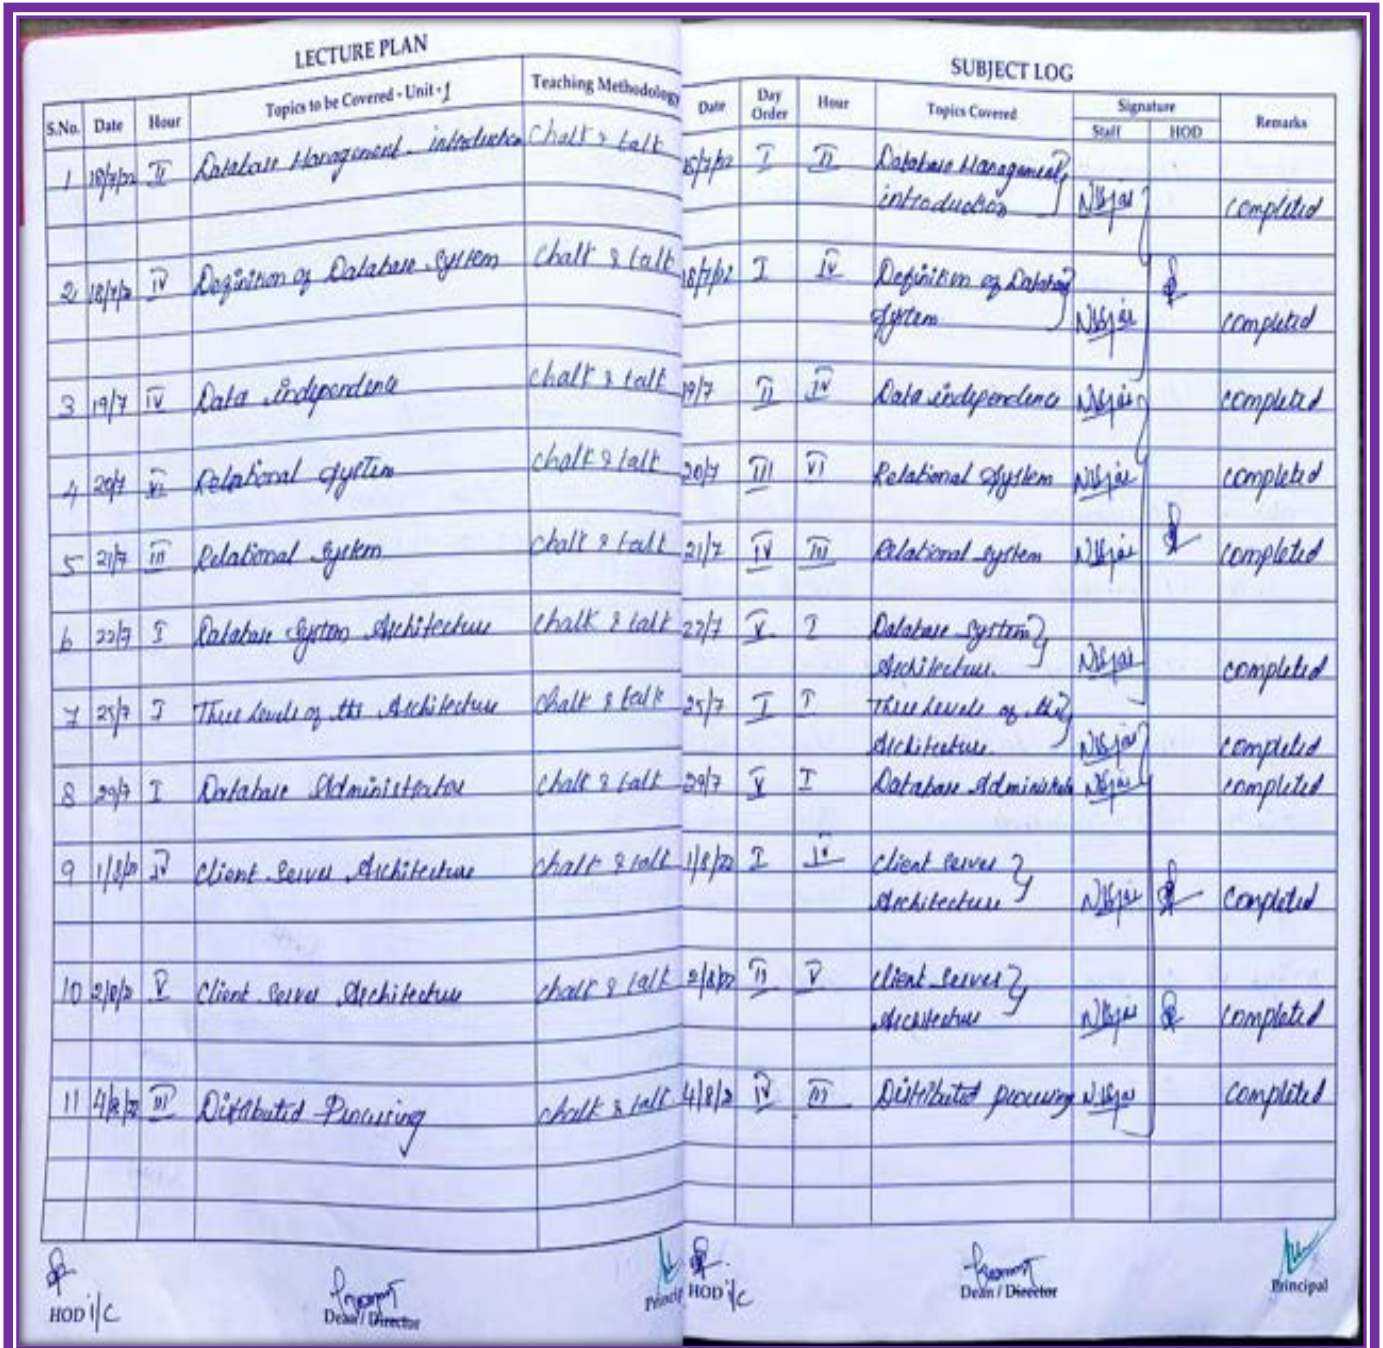 LECTURE PLAN
S.No. Date Hour Topics to be Covered - Unit - 1 Teaching Methodology
1 18/7/22 II Database Management - introduction chalk & talk
2 18/7/2 IV Definition of Database System chalk & talk
3 19/7 IV Data independence chalk & talk
4 20/7 VI Relational System chalk & talk
5 21/7 III Relational System chalk & talk
6 22/7 I Database System Architecture chalk & talk
7 25/7 I Three Levels of the Architecture chalk & talk
8 29/7 I Database Administrator chalk & talk
9 1/8/2 IV Client Server Architecture chalk & talk
10 2/8/2 V Client Server Architecture chalk & talk
11 4/8/22 III Distributed Processing chalk & talk
HOD i/c Dean / Director Princip
SUBJECT LOG
Date Day Order Hour Topics Covered Signature Remarks
Staff HOD
18/7/22 I II Database Management,
introduction completed
18/7/22 I IV Definition of Database
System completed
19/7 II IV Data independence completed
20/7 III VI Relational System completed
21/7 IV III Relational System completed
22/7 V I Database System
Architecture. completed
25/7 I I Three Levels of the
Architecture. completed
29/7 V I Database Administrator completed
1/8/22 I IV Client Server
Architecture completed
2/8/22 II V Client Server
Architecture completed
4/8/2 IV III Distributed processing completed
HOD i/c Dean / Director Principal